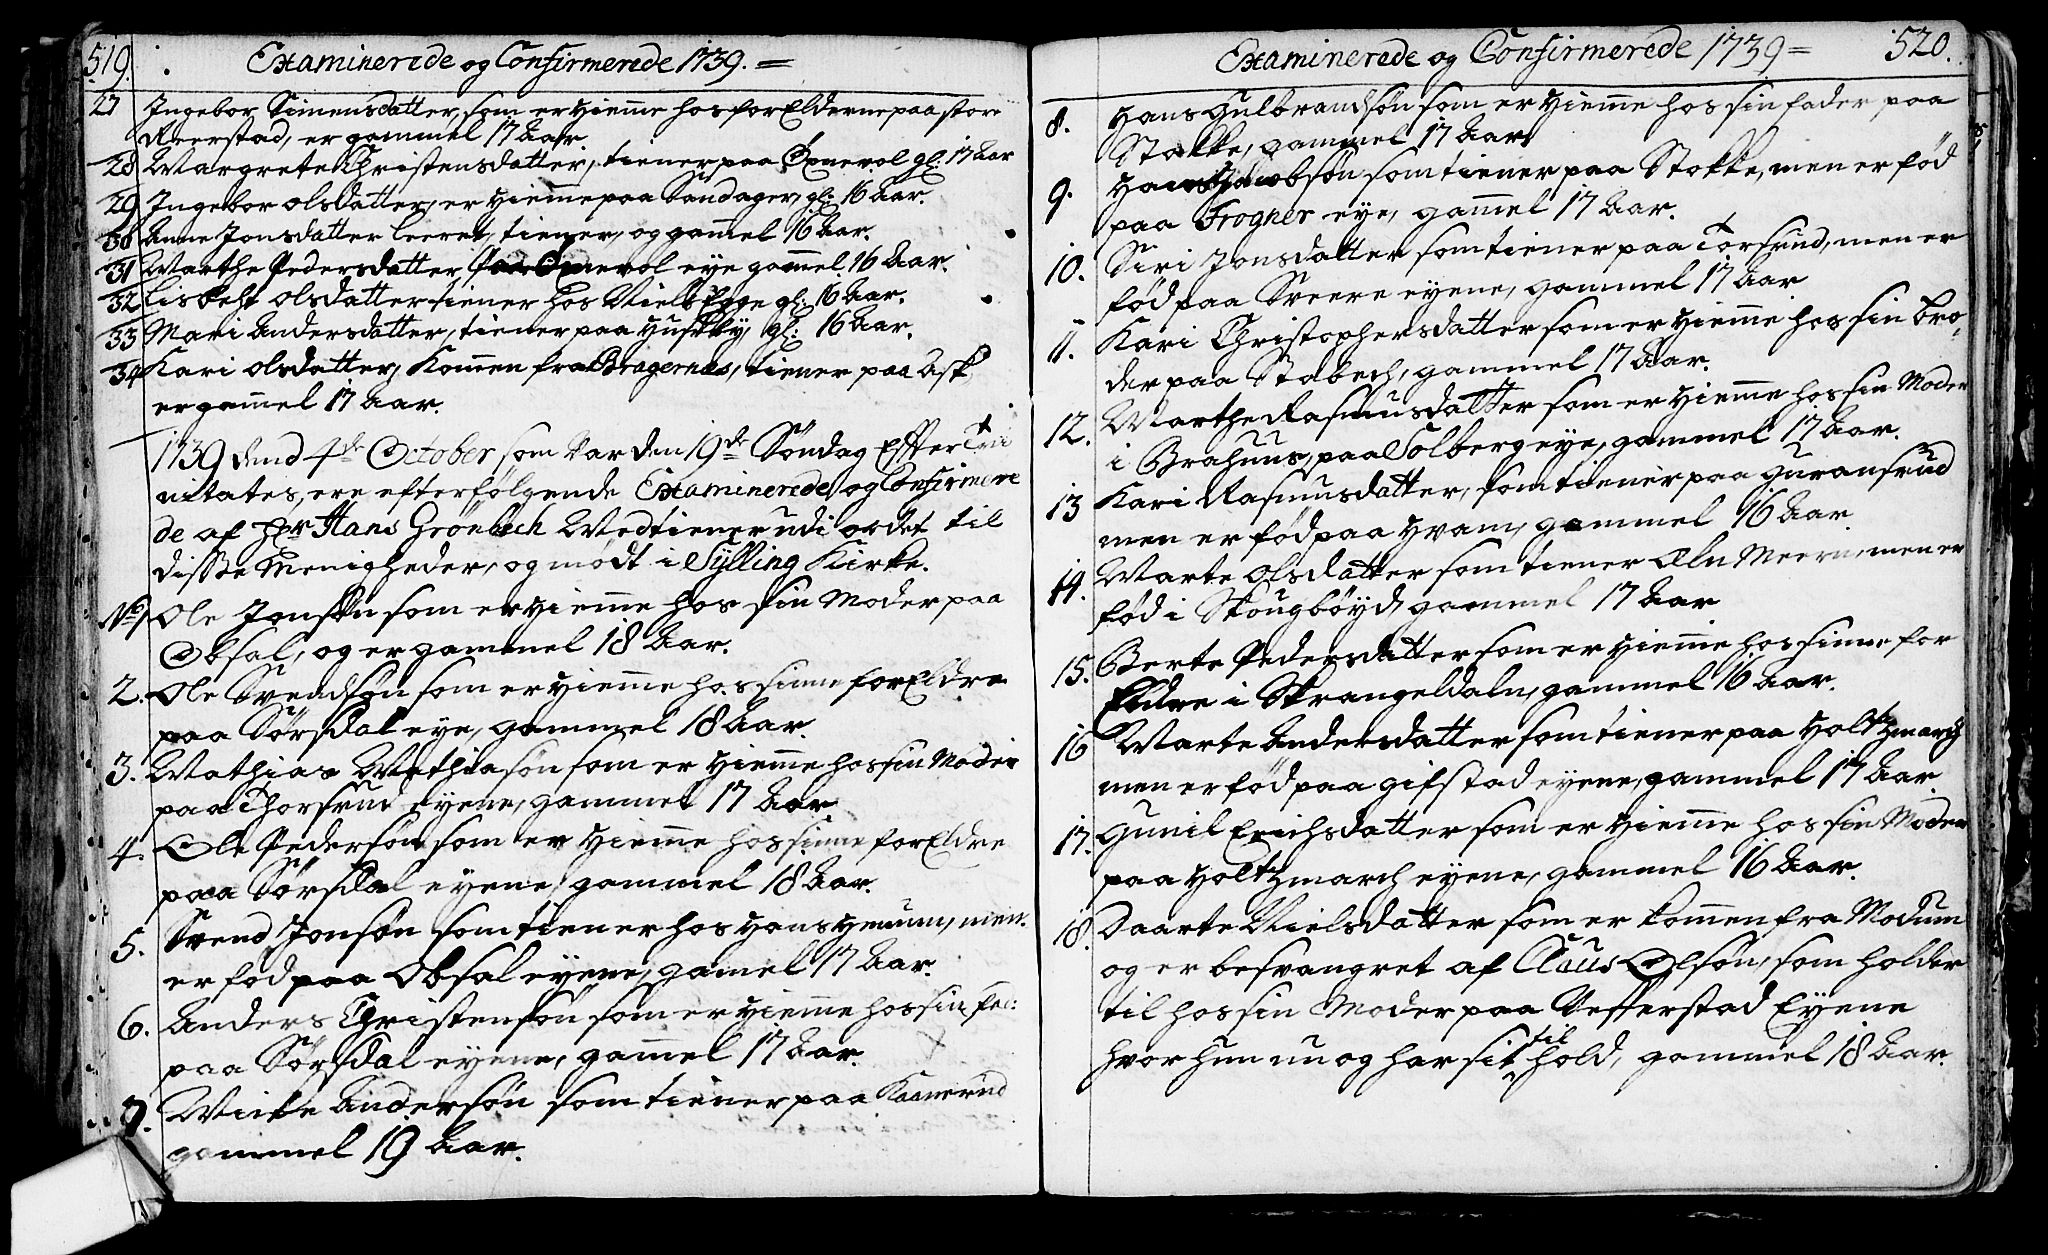 519.
Examinerede og Confirmerede 1739. =
27 Ingebor Simensdatter, som er hieme hos forElderne paa store
Reerstad, er gammel 17 Aar.
28 Margrete Christensdatter, tiener paa Egnevol gl: 17 Aar
29 Ingebor olsdatter, er hieme paa Sundager, gl: 16 Aar.
30 Anne Jonsdatter leeret, tiener, og gamel 16 Aar.
31 Marthe Pedersdatter paa Egnevol eye gamel 16 Aar.
32 Lisbeht olsdatter tiener hos Niels gl: 16 Aar.
33 Mari Andersdatter, tiener paa Huseby, gl: 16 Aar.
34 Kari olsdatter, Komen fra Bragernes, tiener paa Ask
er gamel 17 Aar.
1739 dend 4de October som var den 19de Søndag Effter Tri
nitates, ere efterfølgende Examinerede og Confirmere
de af Hr Hans Grønbech Medtiener udi ordet til
disse Menigheder, og mødt i Sylling Kirke.
No 1 Ole Jonsøn som er hieme hos sin Moder paa
Obsal, og er gammel 18 Aar.
2. Ole Svendsøn som er hieme hos sinne forEldre
paa Sørsdal eye, gammel 18 Aar.
3. Mathias Mathiasøn som er hieme hos sin Moder
paa Thorsrud eyene, gammel 17 Aar
4. Ole Pedersøn som er hieme hos sinne forEldre
paa Sørsdal eyene, gammel 18 Aar.
5. Svend Jonsøn som tiener hos Hans men
er fød paa Obsal eyene, gamel 17 Aar.
6. Anders Christensøn som er hieme hos sin fad:
paa Sørsdal eyene, gamel 17 Aar.
7. Micke Andersøn som tiener paa Kaanerud
gammel 19 Aar.
Examinerede og Confirmerede 1739 = 520.
8. Hans Gulbrandsøn som er hieme hos sin fader paa
Stokke, gammel 17 Aar
9. Hans Jacobsøn som tiener paa Stokke, men er fød
paa Frogner eye, gamel 17 Aar.
10. Siri Jonsdatter som tiener paa Torsrud, men er
fød paa Sveere eyene, gammel 17 Aar
11. Kari Christophersdatter som er hieme hos sin bro,
der paa Stabech, gammel 17 Aar.
12. Marthe Rasmusdatter som er hieme hos sin Moder
i Brahuus, paa Solberg eye, gammel 17 Aar.
13 Kari Rasmusdatter, som tiener paa Huransrud
men er fød paa Hvam, gammel 16 Aar
14. Marte olsdatter som tiener Meern, men er
fød i Skougbøyd gammel 17 Aar
15. Berte Pedersdatter som er hieme hos sinne for
Eldre i Skrangeldaln, gammel 16 Aar.
16 Marte Andersdatter som tiener paa Holtzmarch
men er fød paa Gifstad eyene, gammel 17 Aar.
17. Gunil Erichsdatter som er hieme hos sin Moder
paa Holtzmarch eyene, gammel 16 Aar.
18. Daarte Nielsdatter som er komen fra Modum
og er besvangret af Claus Olsøn, som holder
til hos sin Moder paa Vefferstad Eyene
hvor hun nu og har sit til hold, gammel 18 Aar.